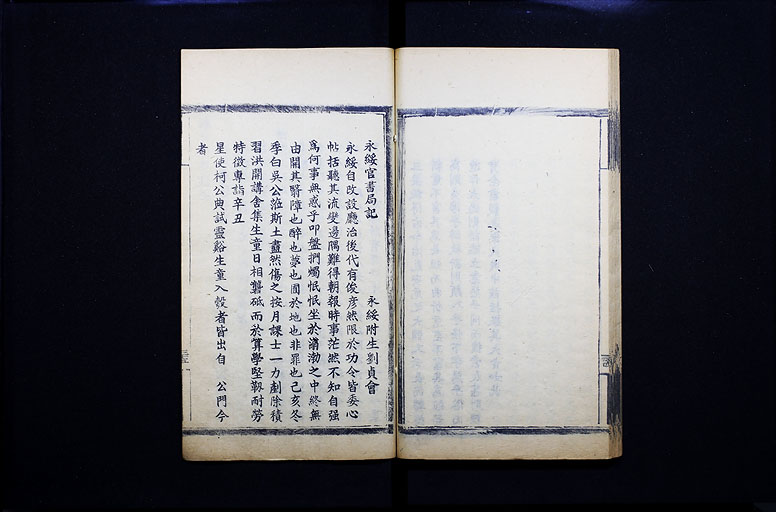 永綏官書局記
永綏附生劉貞會
永綏自改設廳治後代有俊彥然限於功令皆委心
帖括聽其流變邊隅難得朝報時事茫然不知自强
爲何事無惑乎叩盤捫燭怋怋坐於滃渤之中終無
由開其翳障也醉也夢也囿於地也非罪也己亥冬
季白吳公涖斯土衋然傷之按月課士一力剷除積
習洪開講舍集生童日相礱砥而於算學堅韌耐勞
特徵專詣辛丑
星使柯公典試靈谿生童入彀者皆出自 公門今
者